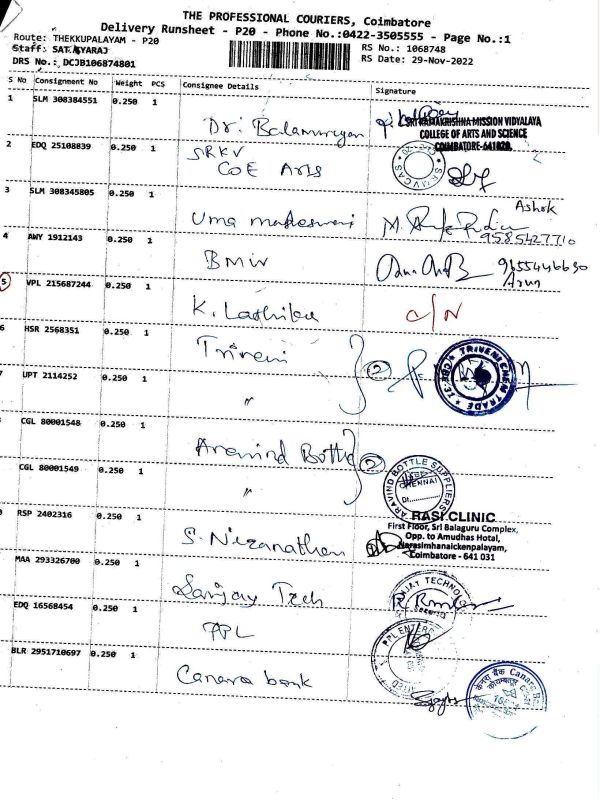 THE PROFESSIONAL COURIERS, Coimbatore
Delivery Runsheet - P20 - Phone No.:0422-3505555 - Page No.:1
Route: THEKKUPALAYAM - P20
RS No.: 1068748
Staff: SAT YARAJ
RS Date: 29-Nov-2022
DRS No.: DCJB106874801
S No Consignment No Weight PCS Consignee Details Signature
1 SLM 308384551 0.250 1 Dr. Balamurugan
SRI RAMAKRISHNA MISSION VIDYALAYA
COLLEGE OF ARTS AND SCIENCE
COIMBATORE-641020.
2 EDQ 25108839 0.250 1 SRKV
COE Arts
3 SLM 308345805 0.250 1 Uma maheswari M. Ashok
9585427710
4 AWY 1912143 0.250 1 BMW 9655446630
Arun
5 VPL 215687244 0.250 1 K. Lathika C/N
6 HSR 2568351 0.250 1 Triveni 2 TRIVENI CHEM TRADE
7 UPT 2114252 0.250 1 "
CGL 80001548 0.250 1 Aravind Bottle 2
CGL 80001549 0.250 1 " ARAVIND BOTTLE SUPPLIERS
CHENNAI
RSP 2402316 0.250 1 S.
RASI CLINIC
First Floor, Sri Balaguru Complex,
Opp. to Amudhas Hotal,
Narasimhanaickenpalayam,
Coimbatore - 641 031
MAA 293326700 0.250 1 Sanjay Tech
EDQ 16568454 0.250 1 PPL
BLR 2951710697 0.250 1 Canara bank
केनरा बैंक Canara